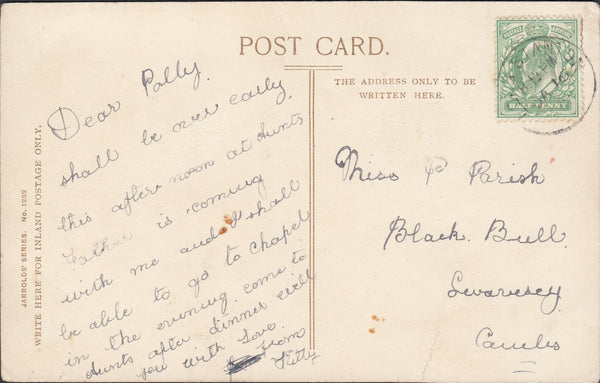 POST CARD.
THE ADDRESS ONLY TO BE
WRITTEN HERE.
HALFPENNY
JARROLDS' SERIES. No. 1232
WRITE HERE FOR INLAND POSTAGE ONLY.
Dear Polly.
shall be over early
this afternoon at Aunts
Father is coming
with me and I shall
be able to go to chapel
in the evening. come to
Aunts after dinner will
you with Love.
from
Kitty
Miss P Parish
Black. Bull.
Swavesey
Cambs